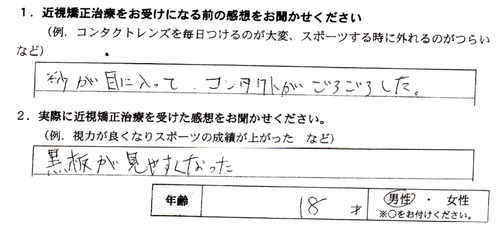 1．近視矯正治療をお受けになる前の感想をお聞かせください
（例．コンタクトレンズを毎日つけるのが大変、スポーツする時に外れるのがつらい
など）
砂が目に入って コンタクトがごろごろした。
2．実際に近視矯正治療を受けた感想をお聞かせください。
（例．視力が良くなりスポーツの成績が上がった など）
黒板が見やすくなった
年齢 18 才 男性 ・ 女性
※○をお付けください。